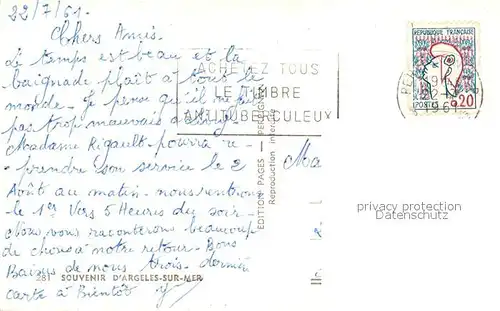 22/7/61.
Chers Amis.
Le temps est beau et la
baignade plaît à tout le
monde. Je pense qu'il ne fait
pas trop mauvais à
Madame Rigault pourra re-
prendre son service le 2
Août au matin. nous rentrons
le 1er Vers 5 Heures du soir
nous vous raconterons beaucoup
de choses à notre retour. Bons
Baisers de nous trois. dernière
carte à Bientôt
Ma
ACHETEZ TOUS
LE TIMBRE
ANTITUBERCULEUX
REPUBLIQUE FRANÇAISE
POSTES 0,20
1961
EDITION PAGES — PERPIGNAN
Reproduction interdite
281 SOUVENIR D'ARGELES-SUR-MER
privacy protection
Datenschutz